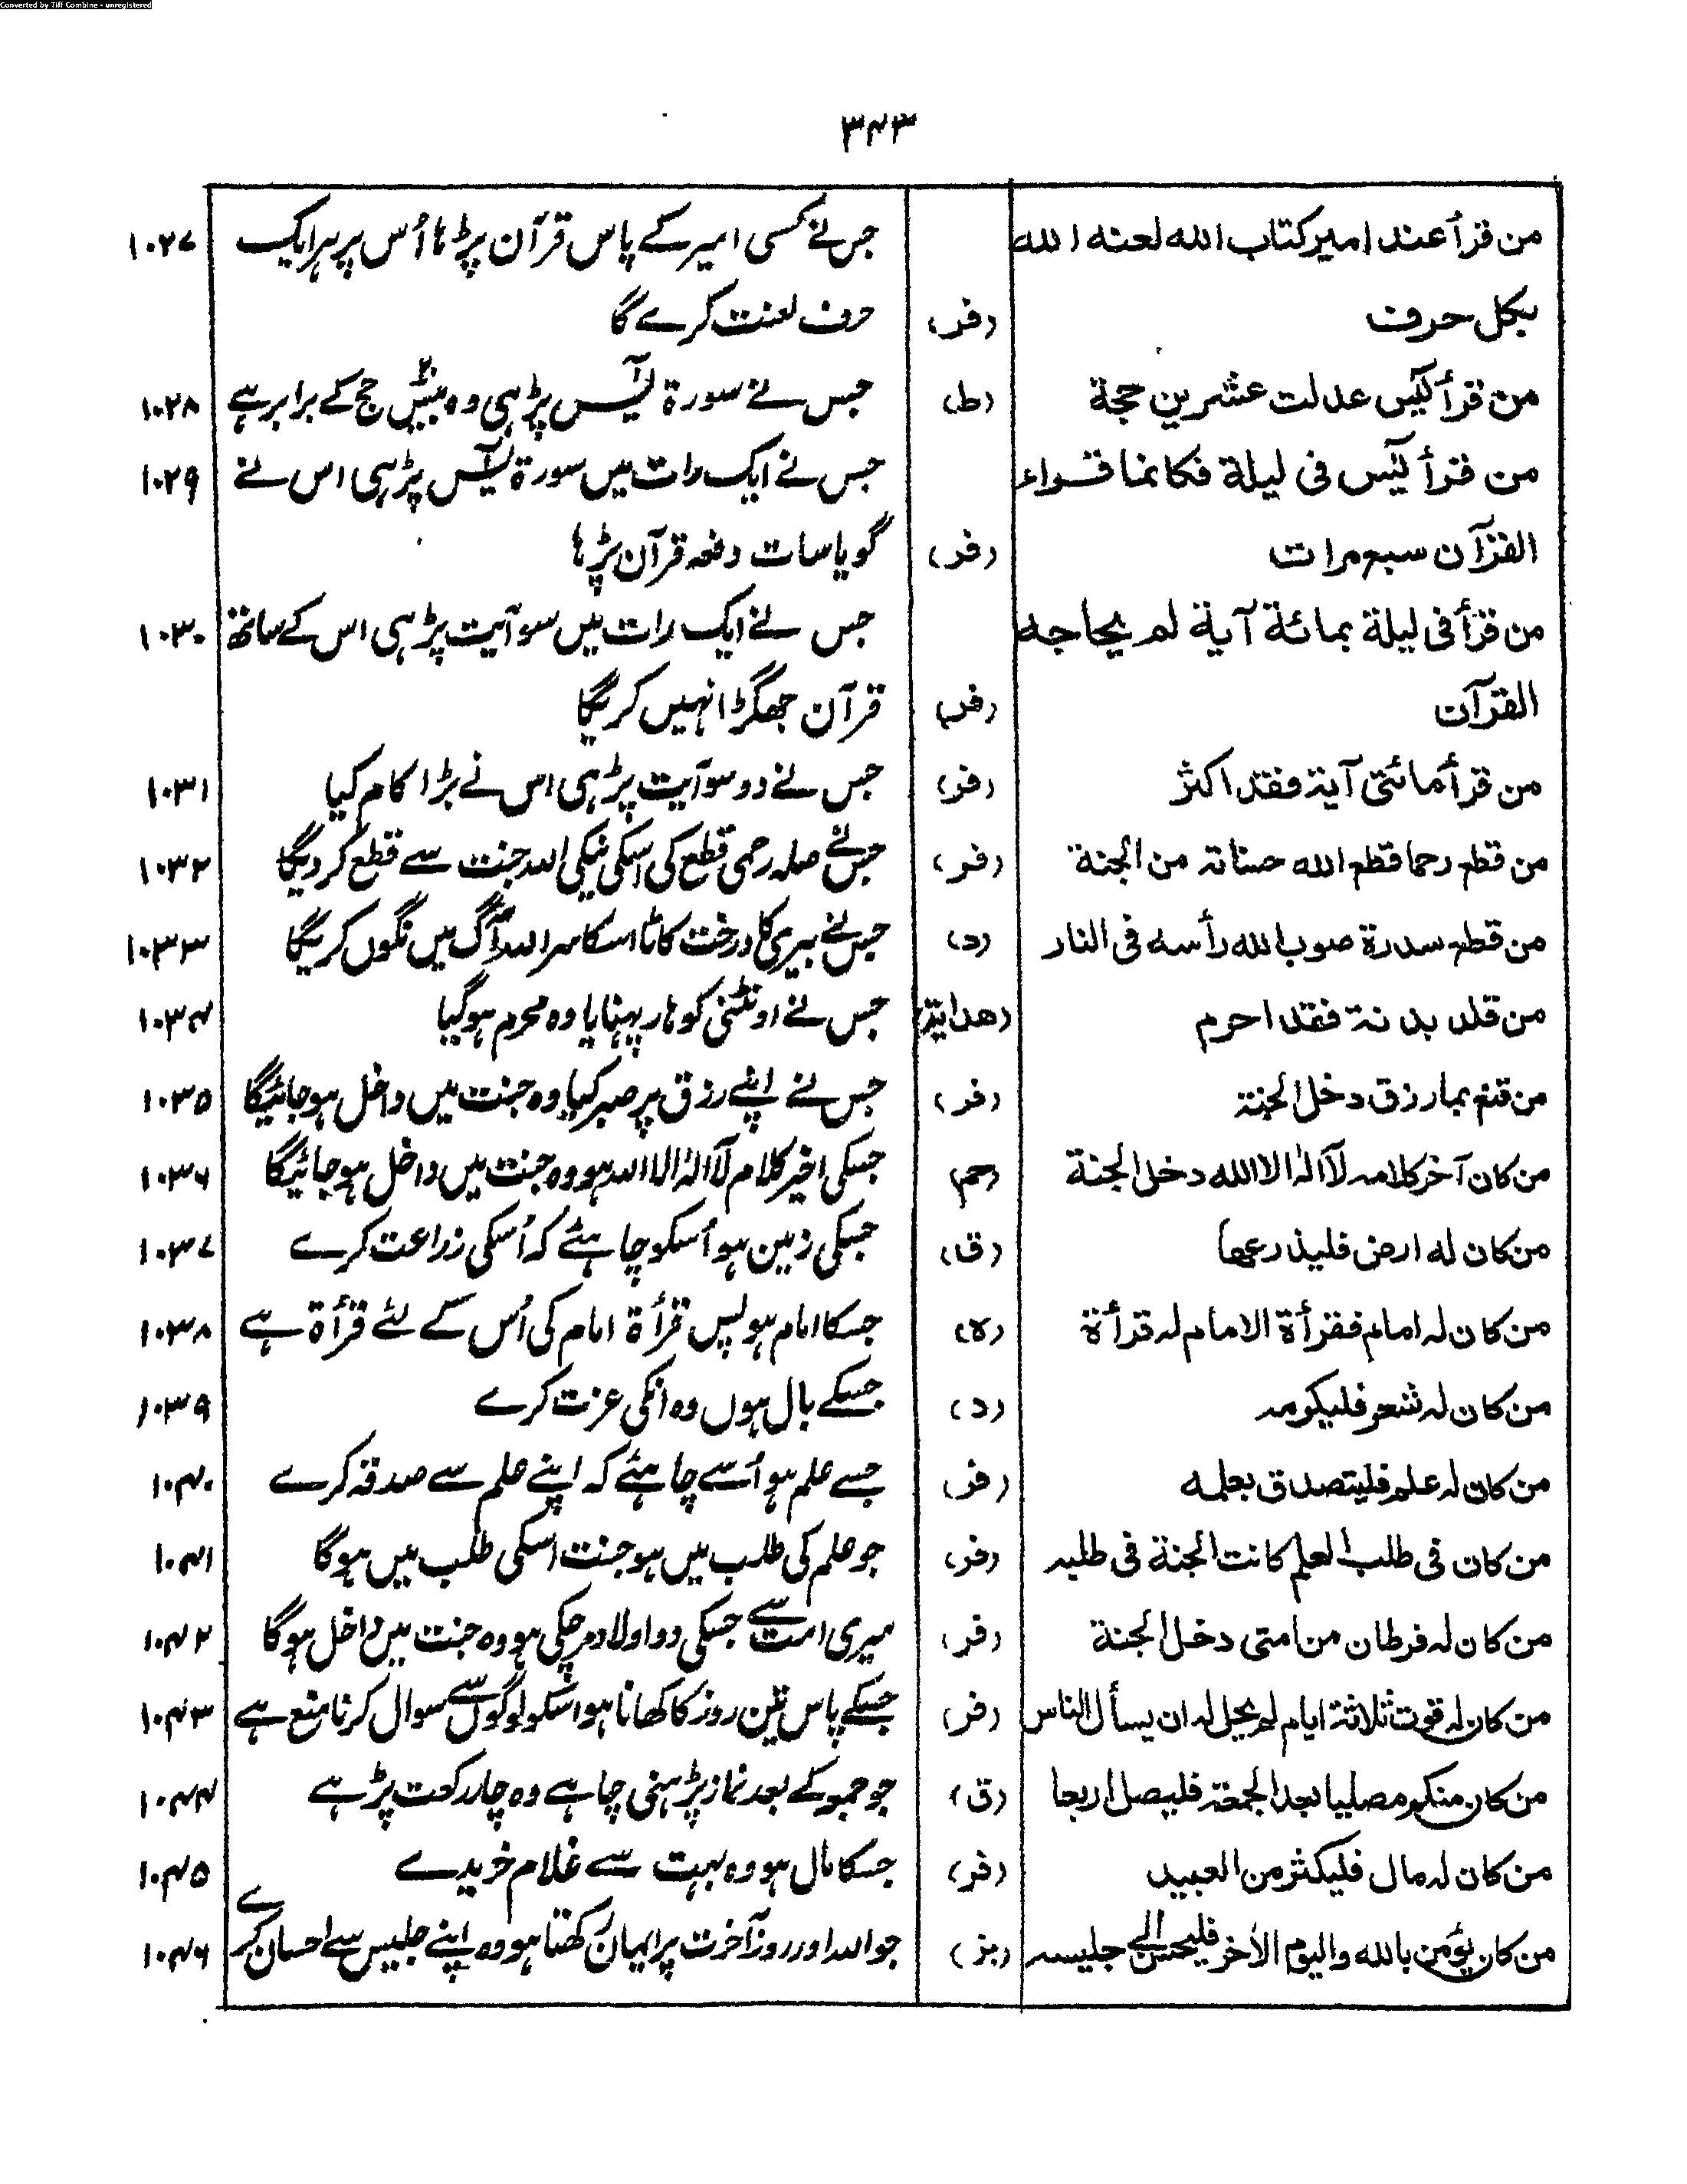 Converted by Tiff Combine - unregistered
۳۴۳
من قرأ عند امیر کتاب الله لعنه الله جس نے کسی امیر کے پاس قرآن پڑہا اُس پر ہر ایک ۱۰۲۷
بکل حرف (فر) حرف لعنت کرے گا
من قرأ یٰس عدلت عشرین حجة (ط) جس نے سورة یٰس پڑہی وہ بیس حج کے برابر ہے ۱۰۲۸
من قرأ یٰس فی لیلة فکانما قراء جس نے ایک رات میں سورة یٰس پڑہی اس نے ۱۰۲۹
القرآن سبع مرات (فر) گویا سات دفعہ قرآن پڑہا
من قرأ فی لیلة بمائة آیة لم یحاجه جس نے ایک رات میں سو آیت پڑہی اس کے ساتھ ۱۰۳۰
القرآن (فر) قرآن جھگڑا نہیں کریگا
من قرأ مائتی آیة فقد اکثر (فر) جس نے دو سو آیت پڑہی اس نے بڑا کام کیا ۱۰۳۱
من قطع رحما قطع الله حسناته من الجنة (فر) جس نے صلہ رحمی قطع کی اسکی نیکی اللہ جنت سے قطع کر دیگا ۱۰۳۲
من قطع سدرة صوب الله رأسه فی النار (د) جس نے بیری کا درخت کاٹا اسکا سر اللہ آگ میں نگوں کریگا ۱۰۳۳
من قلد بدنة فقد احرم (هدایة) جس نے اونٹنی کو ہار پہنایا وہ محرم ہوگیا ۱۰۳۴
من قنع بما رزق دخل الجنة (فر) جس نے اپنے رزق پر صبر کیا وہ جنت میں داخل ہو جائیگا ۱۰۳۵
من کان آخر کلامه لآ الٰه الا الله دخل الجنة (حم) جسکی اخیر کلام لآ الٰہ الا اللہ ہو وہ جنت میں داخل ہو جائیگا ۱۰۳۶
من کان له ارض فلیذرعها (ق) جسکی زمین ہو اُسکو چاہئے کہ اُسکی زراعت کرے ۱۰۳۷
من کان له امام فقرأة الامام له قرأة (ہ) جسکا امام ہو پس قرأة امام کی اُس کے لئے قرأة ہے ۱۰۳۸
من کان له شعر فلیکرمه (د) جسکے بال ہوں وہ انکی عزت کرے ۱۰۳۹
من کان له علم فلیتصدق بعلمه (فر) جسے علم ہو اُسے چاہئے کہ اپنے علم سے صدقہ کرے ۱۰۴۰
من کان فی طلب العلم کانت الجنة فی طلبه (فر) جو علم کی طلب میں ہو جنت اسکی طلب میں ہوگا ۱۰۴۱
من کان له فرطان من امتی دخل الجنة (فر) میری امت سے جسکی دو اولاد مر چکی ہو وہ جنت میں داخل ہوگا ۱۰۴۲
من کان له قوت ثلاثة ایام لم یحل له ان یسأل الناس (فر) جسکے پاس تین روز کا کھانا ہو اسکو لوگوں سے سوال کرنا منع ہے ۱۰۴۳
من کان منکم مصلیا بعد الجمعة فلیصل اربعا (ق) جو جمعہ کے بعد نماز پڑہنی چاہے وہ چار رکعت پڑہے ۱۰۴۴
من کان له مال فلیکثر من العبید (فر) جسکا مال ہو وہ بہت سے غلام خریدے ۱۰۴۵
من کان یؤمن بالله والیوم الأخر فلیحسن الی جلیسه (بز) جو اللہ اور روز آخرت پر ایمان رکھتا ہو وہ اپنے جلیس سے احسان کرے ۱۰۴۶